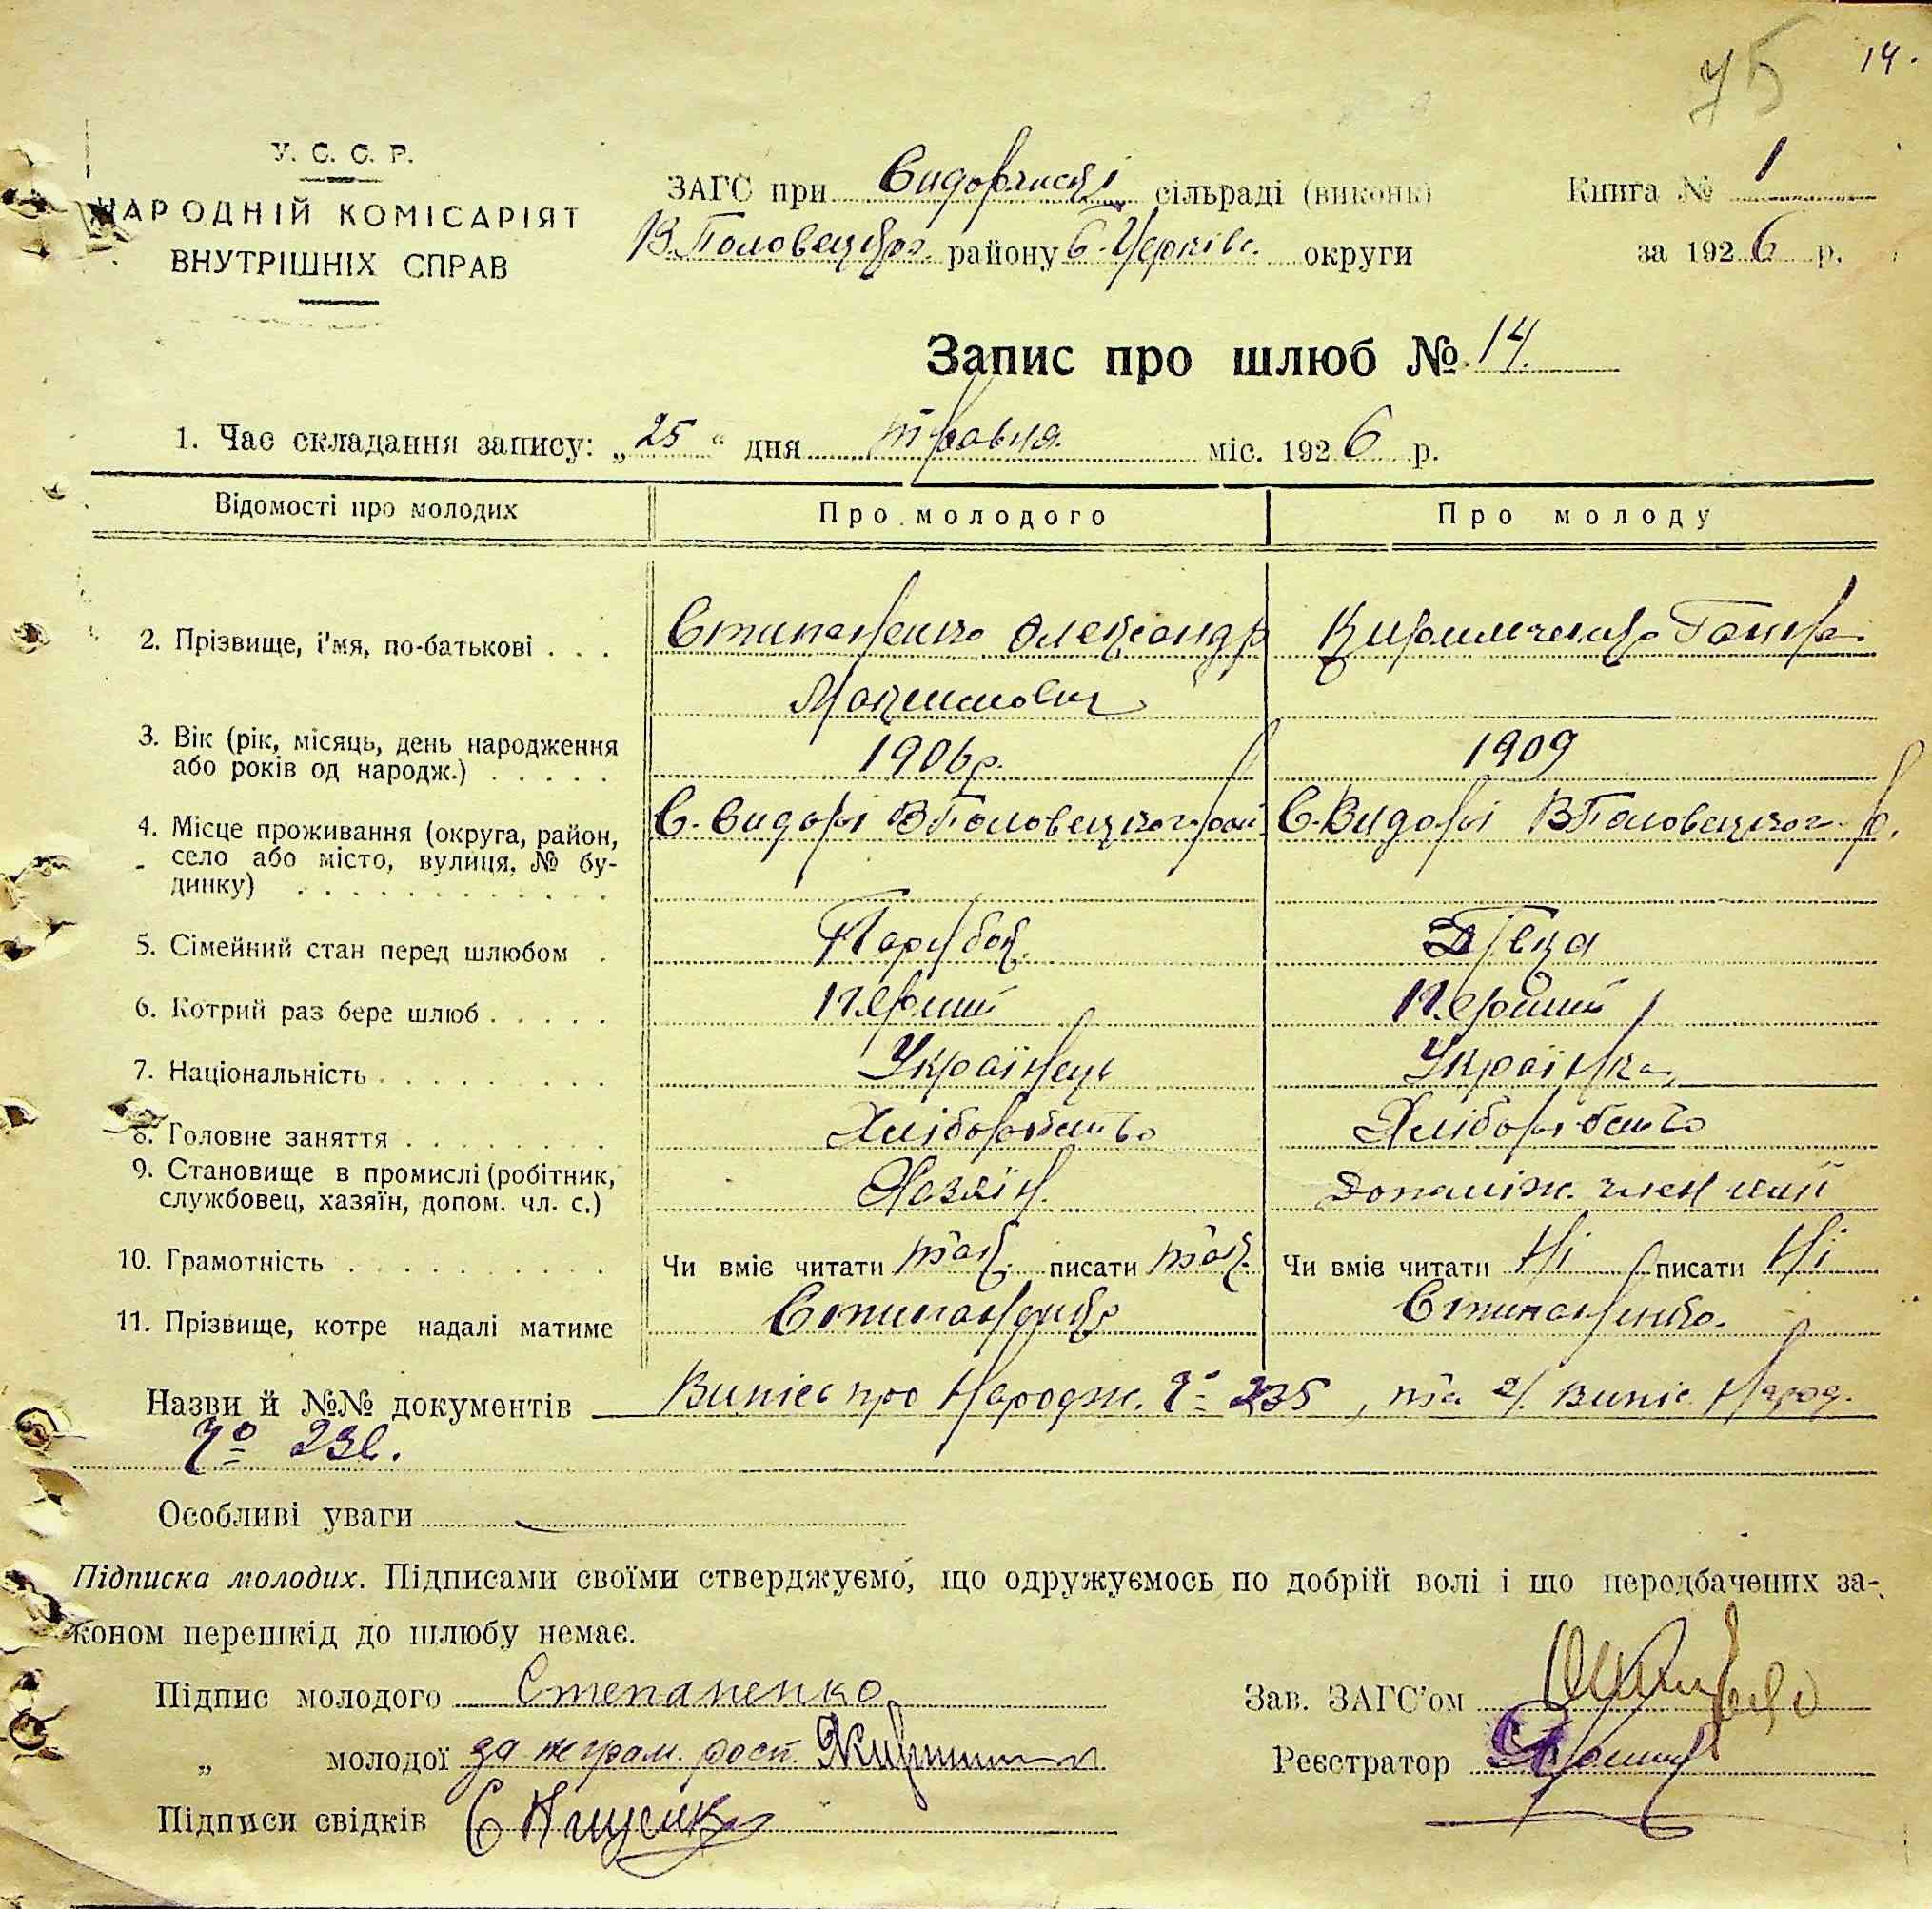 75 14.
У. С. С. Р.
НАРОДНІЙ КОМІСАРІЯТ
ВНУТРІШНІХ СПРАВ
ЗАГС при Сидорівській сільраді (виконк)
В.Половецьк. району Б-Церківс. округи
Книга № 1
за 1926 р.
Запис про шлюб № 14.
1. Час складання запису: „25“ дня травня міс. 1926 р.
Відомості про молодих Про молодого Про молоду
2. Прізвище, і'мя, по-батькові . . . Стипаненко Олександр Кирильченко Ганна
Максимович
3. Вік (рік, місяць, день народження
або років од народж.) . . . . . 1906р. 1909
4. Місце проживання (округа, район,
село або місто, вулиця, № бу-
динку) . . . . . . . . . . . С. Сидорі ВПоловецького рай С. Сидорі ВПоловецког р.
5. Сімейний стан перед шлюбом . Парубок. Дівка
6. Котрий раз бере шлюб . . . . . Перший Перший
7. Національність . . . . . . . . . Українець Українка
8. Головне заняття . . . . . . . . Хліборобство Хліборобство
9. Становище в промислі (робітник,
службовец, хазяїн, допом. чл. с.) Хазяїн. Допоміж. член
10. Грамотність . . . . . . . . . . Чи вміє читати так. писати так. Чи вміє читати Ні писати Ні
11. Прізвище, котре надалі матиме Стипаненко Стипаненко.
Назви й №№ документів Випись про Народж. № 235, та 2/. випис. Народ.
№ 236.
Особливі уваги
Підписка молодих. Підписами своїми стверджуємо, що одружуємось по добрій волі і що передбачених за-
коном перешкід до шлюбу немає.
Підпис молодого Степаненко
„ молодої за неграм. росп.
Підписи свідків Є
Зав. ЗАГС'ом
Реєстратор